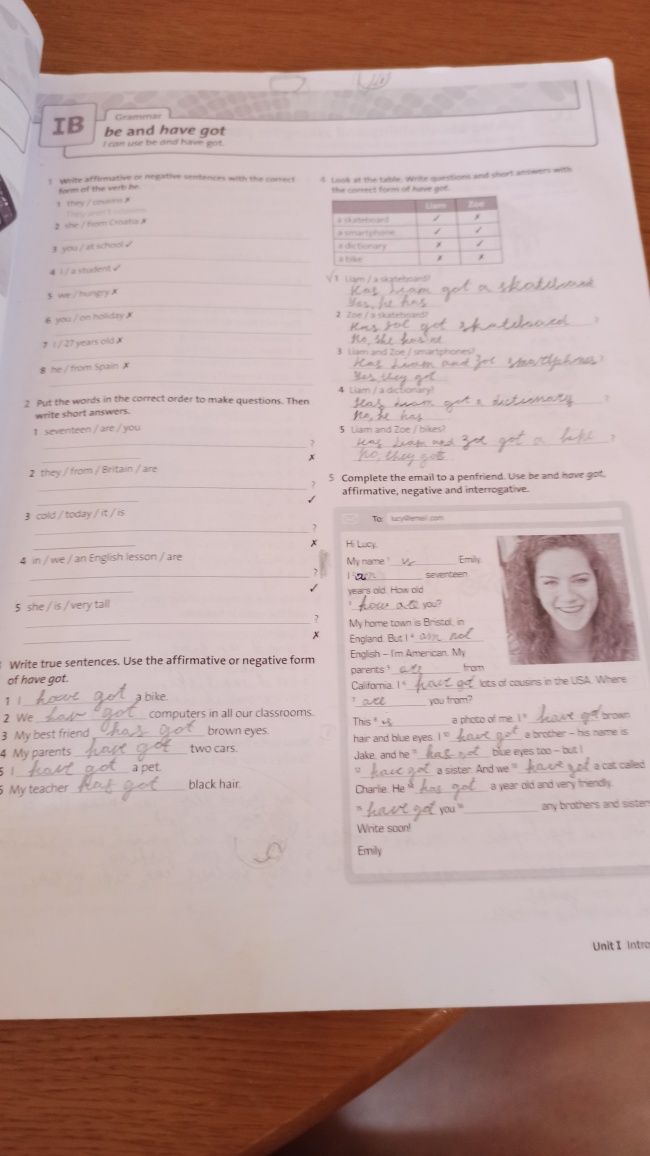 IB
Grammar
be and have got
I can use be and have got.
1 Write affirmative or negative sentences with the correct
form of the verb be.
1 they / cousins ✗
They aren't cousins.
2 she / from Croatia ✗
3 you / at school ✓
4 I / a student ✓
5 we / hungry ✗
6 you / on holiday ✗
7 I / 27 years old ✗
8 he / from Spain ✗
2 Put the words in the correct order to make questions. Then
write short answers.
1 seventeen / are / you
?
✗
2 they / from / Britain / are
?
✓
3 cold / today / it / is
?
✗
4 in / we / an English lesson / are
?
✓
5 she / is / very tall
?
✗
Write true sentences. Use the affirmative or negative form
of have got.
1 I have got a bike.
2 We hav got computers in all our classrooms.
3 My best friend has got brown eyes.
4 My parents have got two cars.
5 I have got a pet.
My teacher has got black hair.
4 Look at the table. Write questions and short answers with
the correct form of have got.
Liam Zoe
a skateboard ✓ ✗
a smartphone ✓ ✓
a dictionary ✗ ✓
a bike ✗ ✗
√1 Liam / a skateboard?
Has Liam got a skateboard
Yes, he has
2 Zoe / a skateboard?
Has zoe got skateboard ?
No, she has
3 Liam and Zoe / smartphones?
Has Liam and zoe smartphones?
Yes they got
4 Liam / a dictionary?
Has Liam got a dictionary ?
No, he has
5 Liam and Zoe / bikes?
Has Liam and Zoe got a bike ?
No, they got
5 Complete the email to a penfriend. Use be and have got,
affirmative, negative and interrogative.
To: lucy@email.com
Hi Lucy,
My name 1 is Emily.
I 2 am seventeen
years old. How old
3 how are you?
My home town is Bristol, in
England. But I 4 am not
English – I'm American. My
parents 5 are from
California. I 6 have got lots of cousins in the USA. Where
7 are you from?
This 8 is a photo of me. I 9 have got brown
hair and blue eyes. I 10 have got a brother – his name is
Jake, and he 11 has got blue eyes too – but I
12 have got a sister. And we 13 have got a cat called
Charlie. He 14 has got a year old and very friendly.
15 have got you 16 any brothers and sister
Write soon!
Emily
Unit I Intro